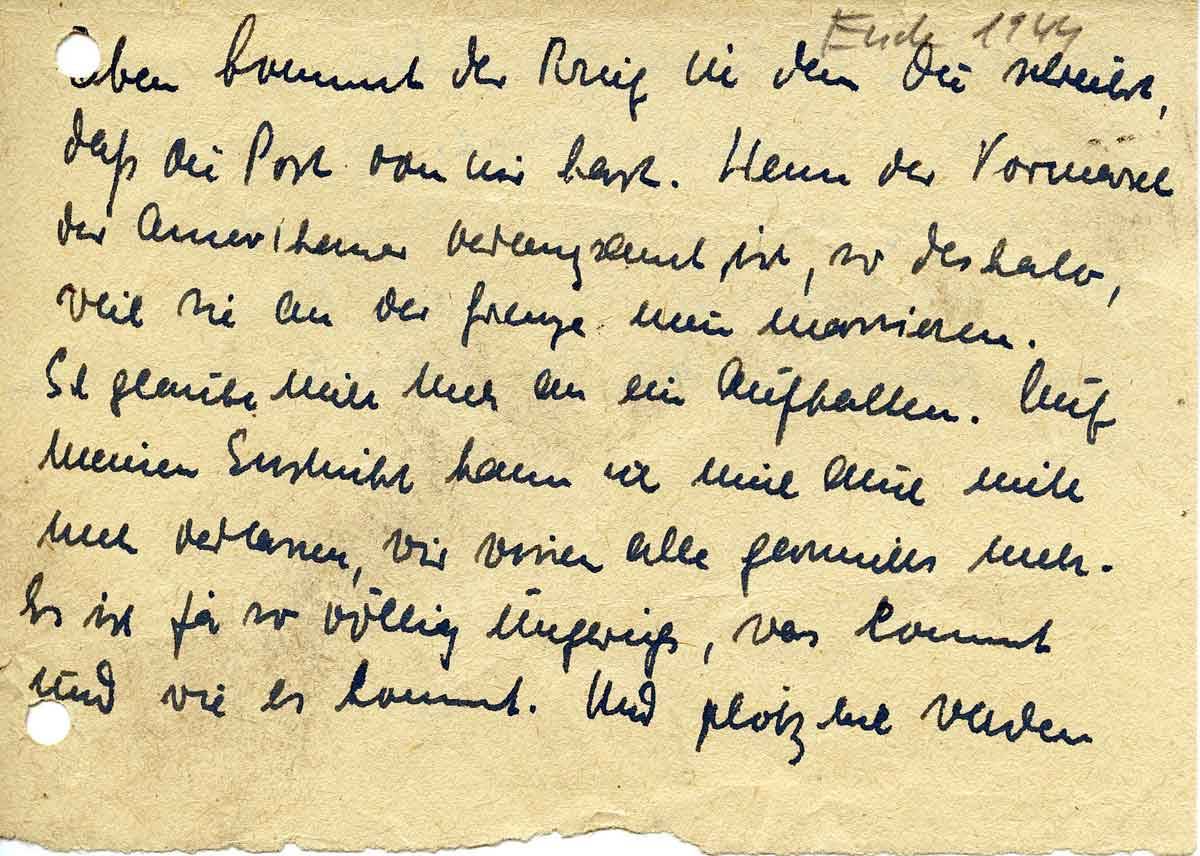 Ende 1944
eben kommt der Brief in dem Du schreibst,
daß Du Post von mir hast. Wenn der Vormarsch
der Amerikaner verlangsamt ist, so deshalb,
weil sie an der Grenze neu massieren.
Ich glaube nicht mehr an ein Aufhalten. Auf
meinen Instinkt kann ich mich auch nicht
mehr verlassen, wir wissen alle garnichts mehr.
Es ist ja so völlig ungewiß, was kommt
und wie es kommt. Und plötzlich werden